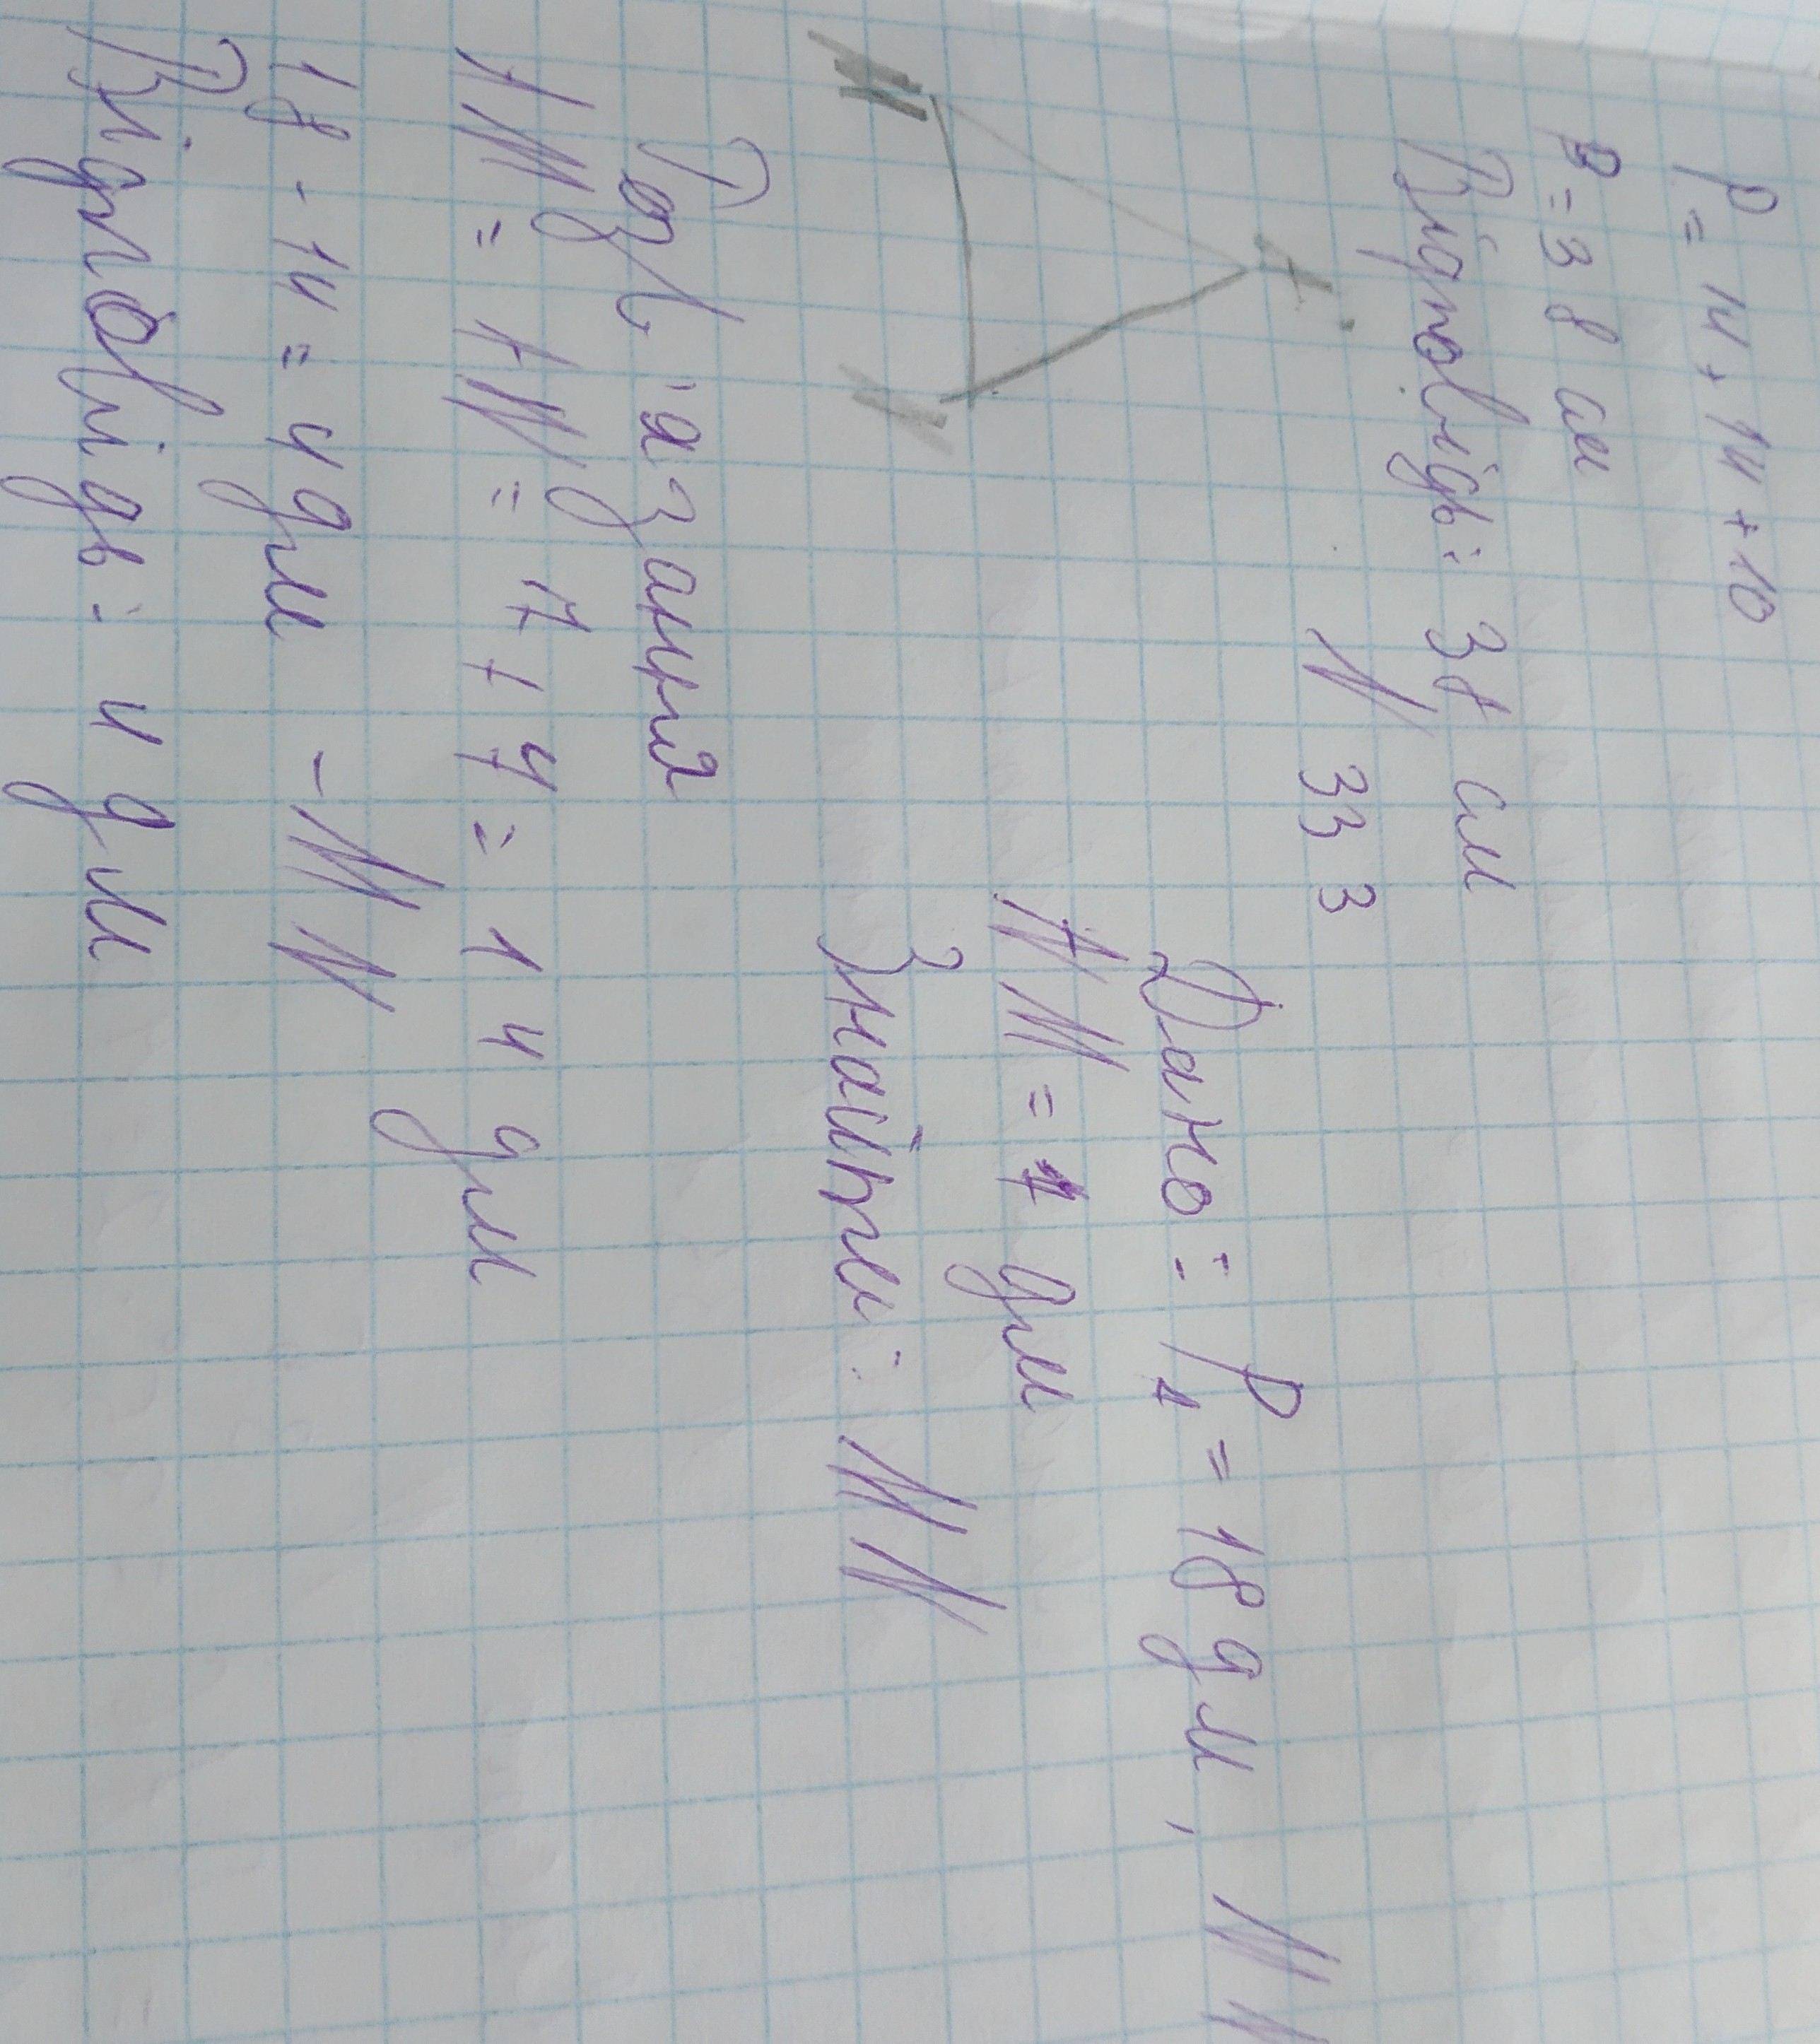 P = 14 + 14 + 10
P = 38 см
Відповідь: 38 см
N 333
Дано: P = 18 дм,
= 7 дм
Знайти: MN
Розв'язання
= 7 + 7 = 14 дм
18 - 14 = 4 дм - MN
Відповідь: 4 дм